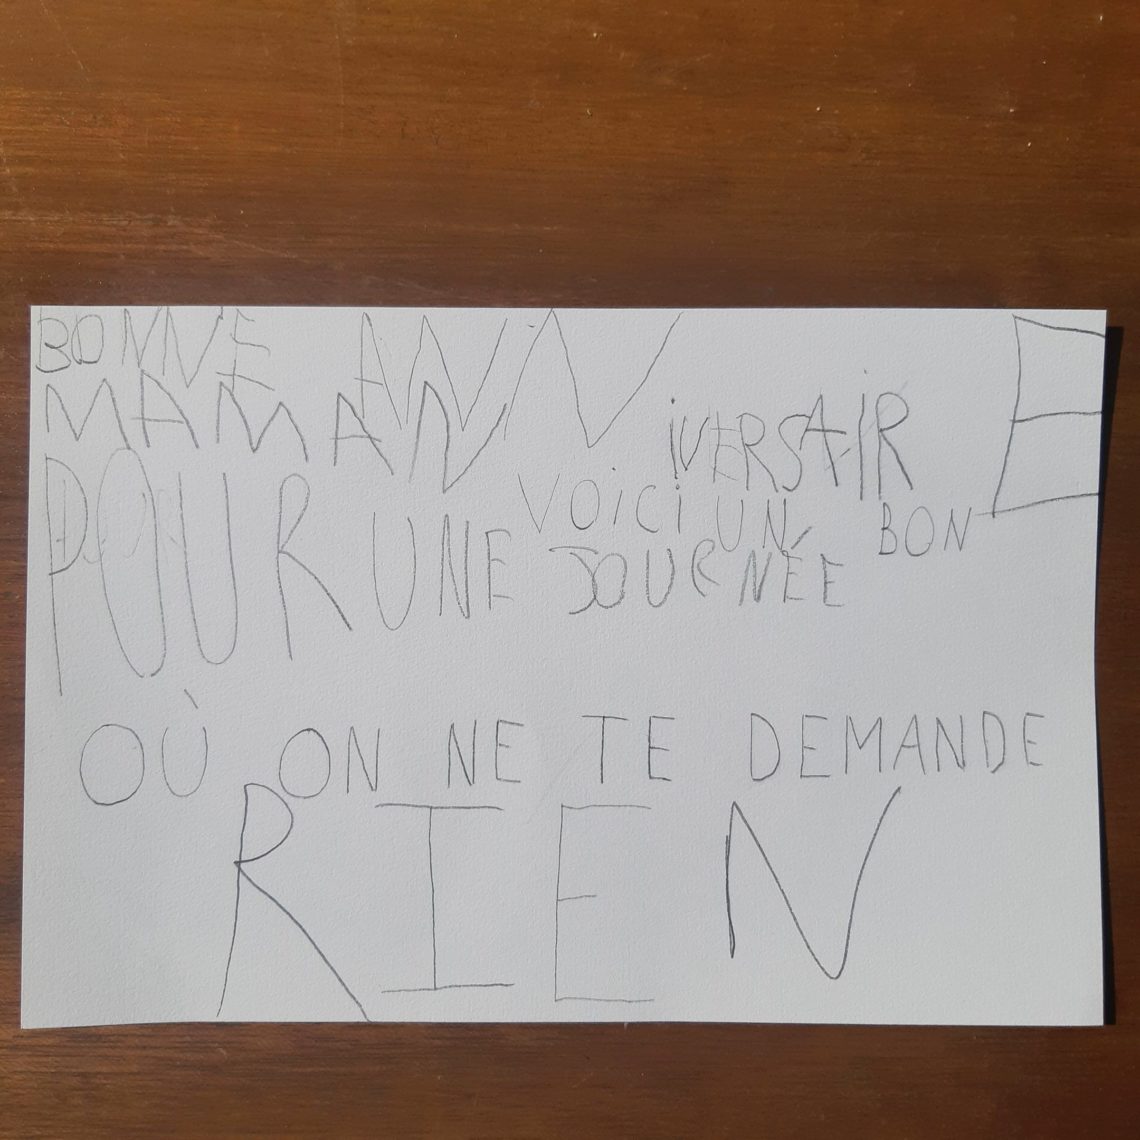 BONNE ANNiVERSAiRE
MAMAN VOiCi UN BON
POUR UNE JOURNÉE
OÙ ON NE TE DEMANDE
RIEN